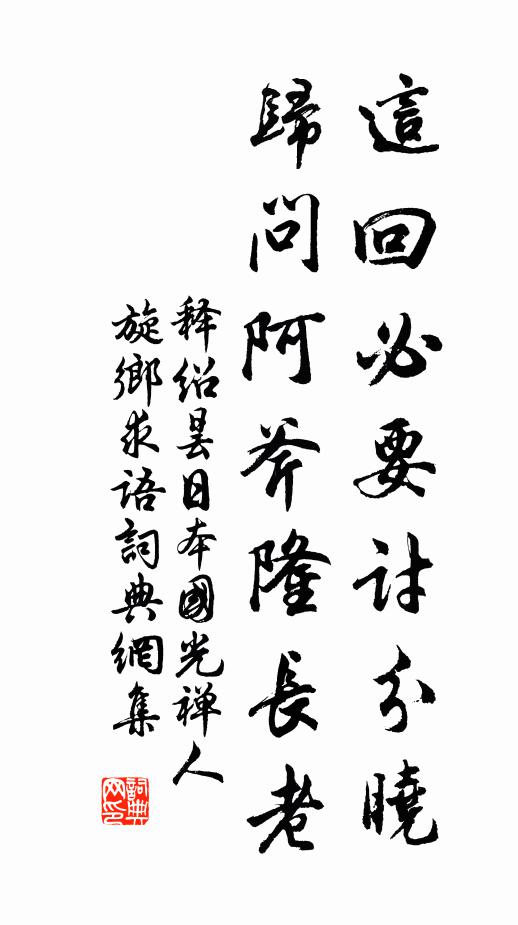 這回必要討分曉
歸問阿斧隆長老
释紹曇日本國光禅人
旋鄉求語詞典網集
詞典
网印